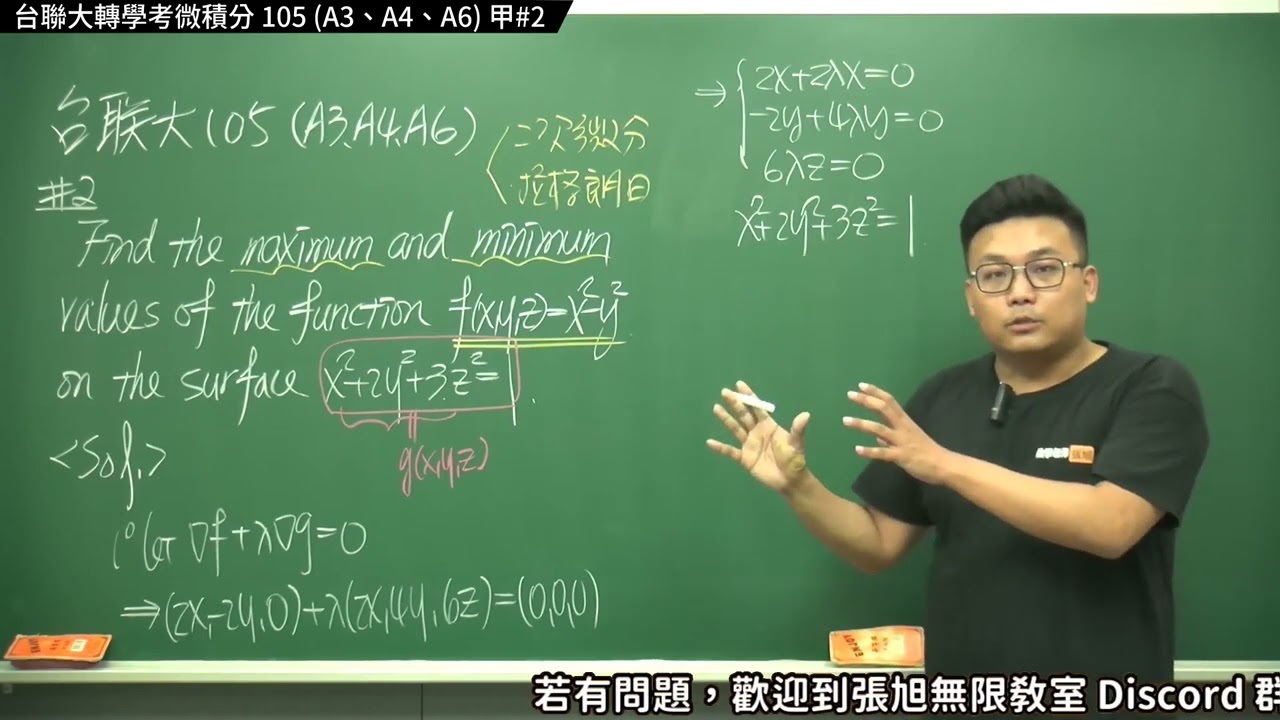 台聯大轉學考微積分 105 (A3、A4、A6) 甲#2
台联大105 (A3.A4.A6)
二次微分
拉格朗日
#2
Find the maximum and minimum
values of the function f(x,y,z)=x²-y²
on the surface x²+2y²+3z²=1.
g(x,y,z)
<Sol.>
1° let ∇f+λ∇g=0
⇒(2x,-2y,0)+λ(2x,4y,6z)=(0,0,0)
⇒ { 2x+2λx=0
-2y+4λy=0
6λz=0
x²+2y²+3z²=1
ENJOY
若有問題，歡迎到張旭無限教室 Discord 群